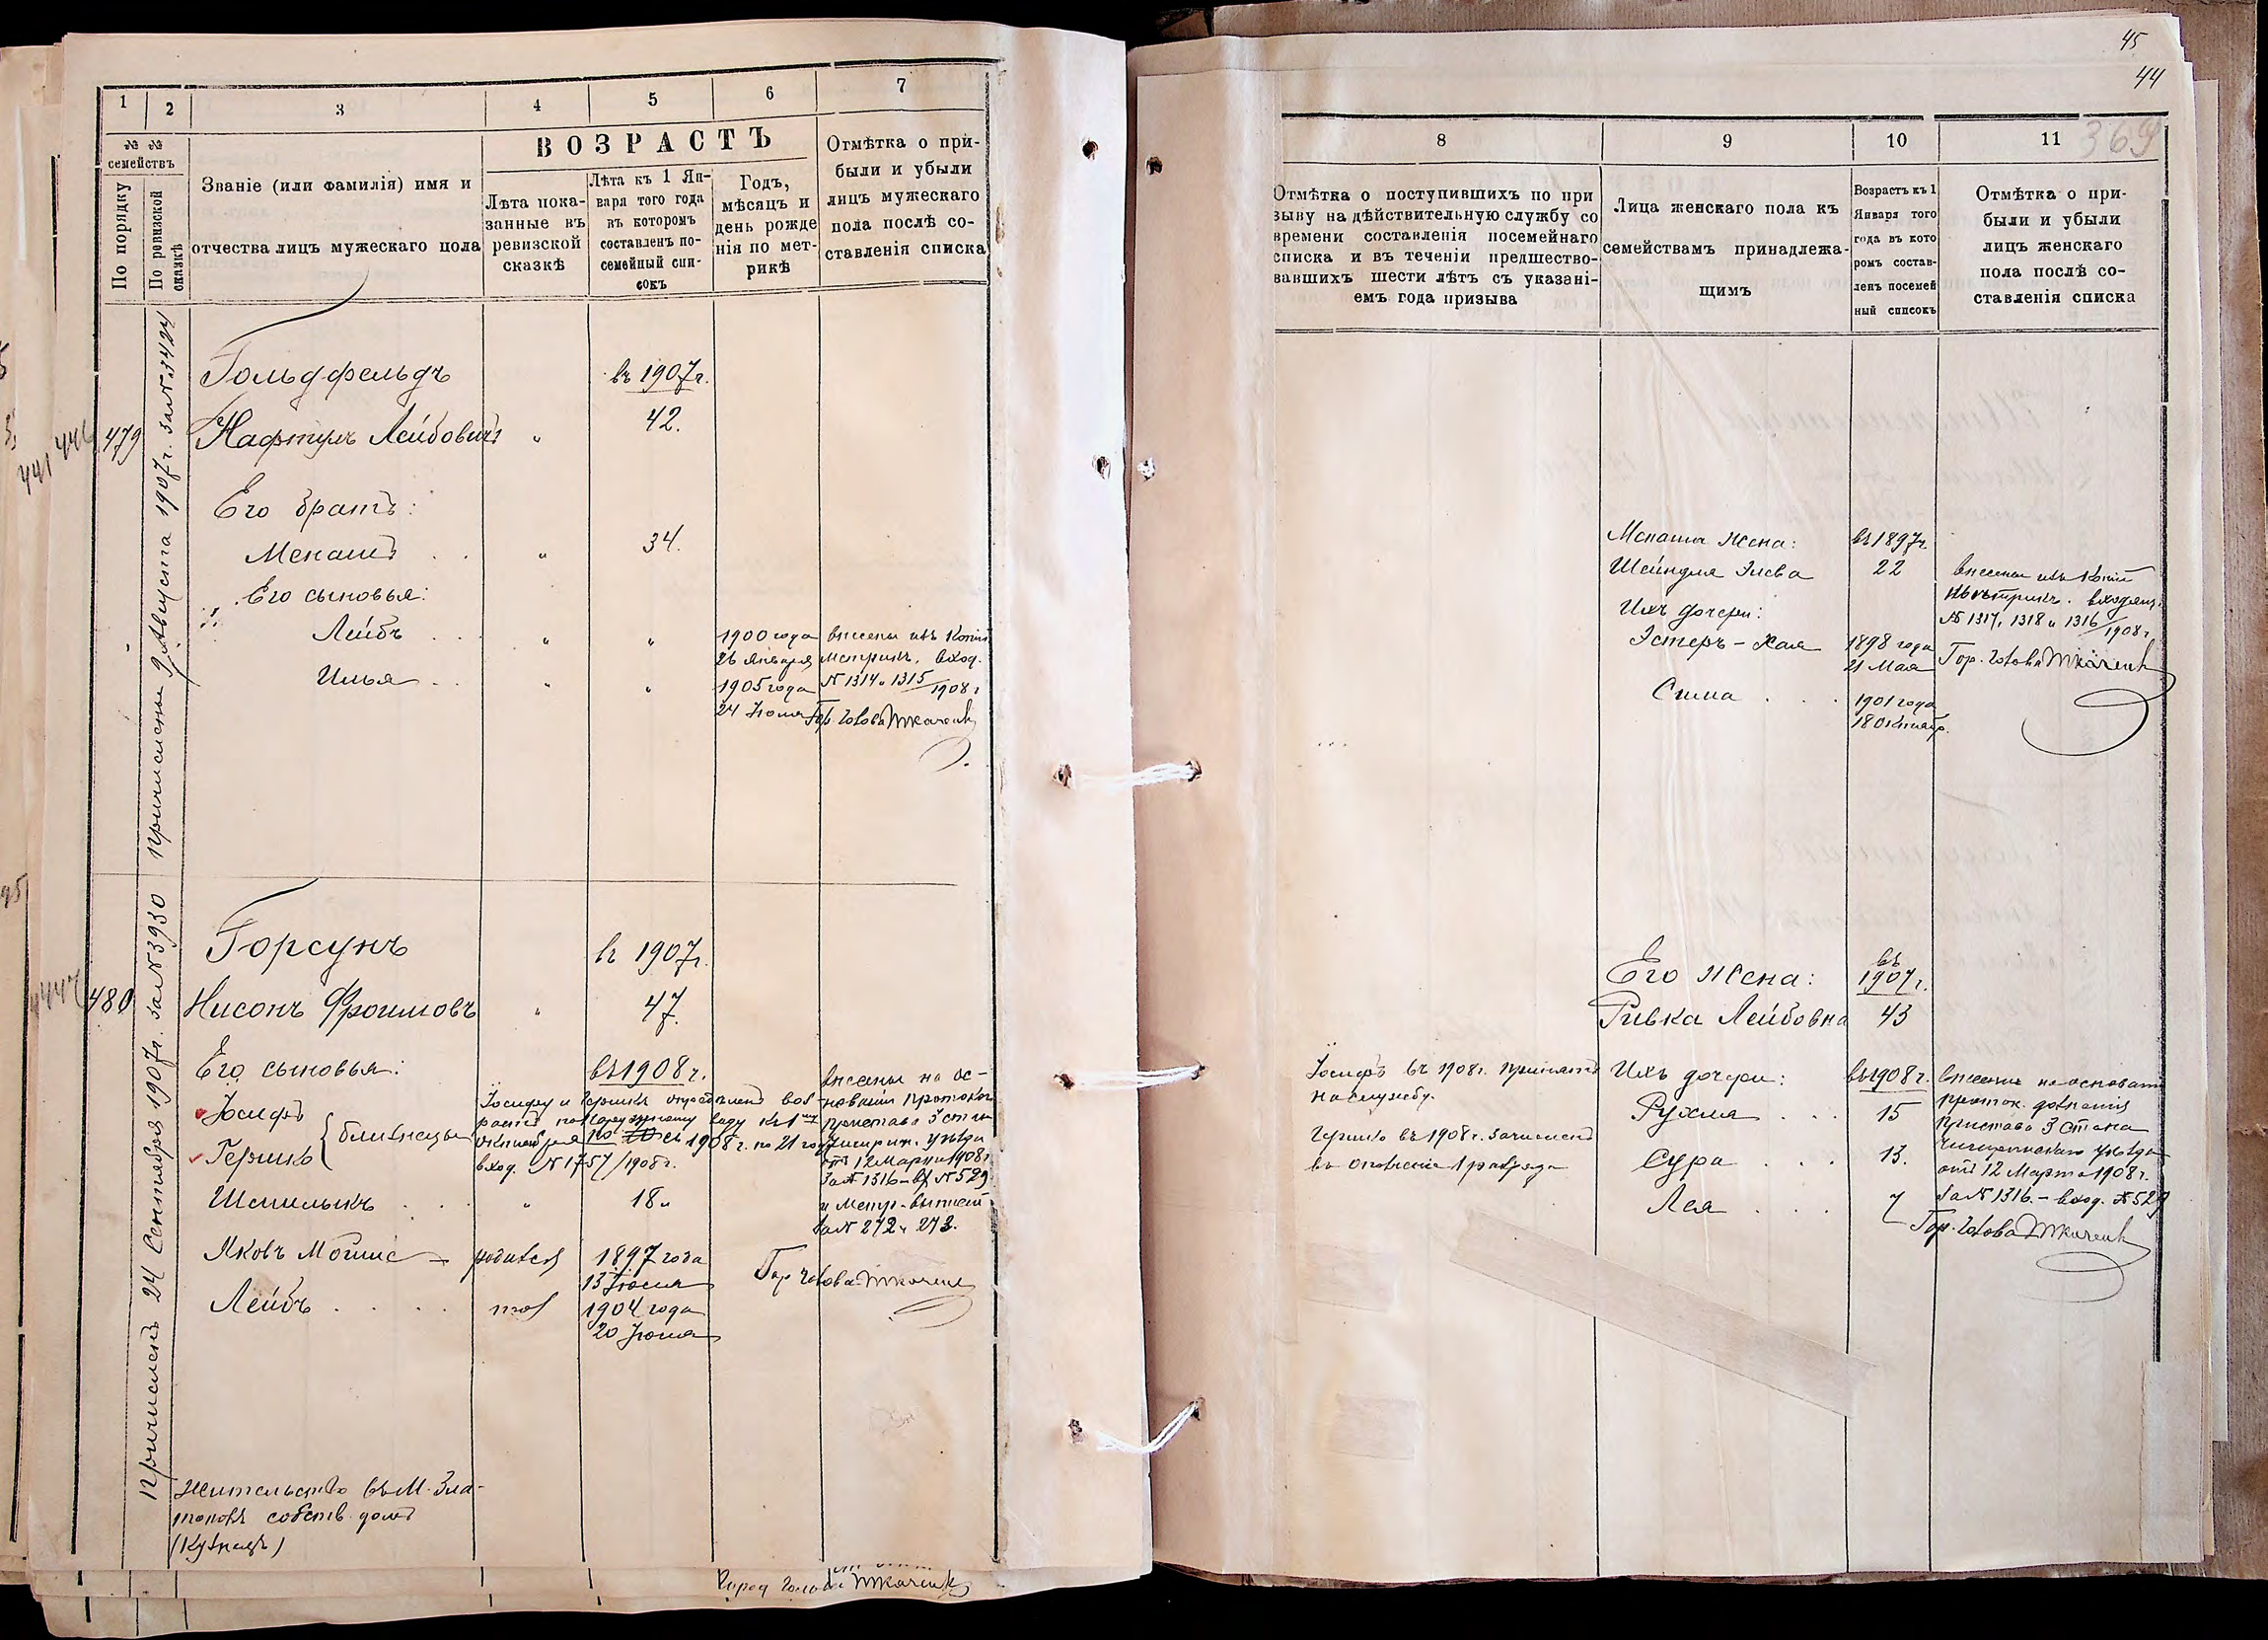 45
44
369
1
2
3
4
5
6
7
№ №
семействъ
По порядку
По ревизской
сказкѣ
Званіе (или фамилія) имя и
отчества лицъ мужескаго пола
ВОЗРАСТЪ
Лѣта пока-
занные въ
ревизской
сказкѣ
Лѣта къ 1 Ян-
варя того года
въ котором
составленъ по-
семейный спи-
сокъ
Годъ,
мѣсяцъ и
день рожде
нія по мет-
рикѣ
Отмѣтка о при-
были и убыли
лицъ мужескаго
пола послѣ со-
ставленія списка
446
441
479
причислены 9 Августа 1907 г. за № 3424
Гольдфельдъ
въ 1907 г.
Нафтулъ Лейбовичъ "
42.
Его братъ:
Менашъ . . "
34.
Его сыновья:
Лейбъ . . . " "
1900 года
26 Января
Илья . . . " "
1905 года
24 Іюля
внесены изъ Копій
Метрикъ. вход.
№ 1314 и 1315/1908 г.
Гор. Голова Ткаченко
447
480
причисленъ 24 Сентября 1907 г. за № 3930
Горсунъ
въ 1907 г.
Нисонъ Фроимовъ "
47.
Его сыновья:
въ 1908 г.
Іосифъ
Гершко
близнецы
Іосифу и Гершке опредѣленъ воз-
растъ по наружному виду къ 1му
Октября 1908 г. по 21 году
вход. № 1757/1908 г.
Шмилыкъ . . . "
18 "
Яковъ Мошис - родился
1897 года
13 Іюля
Лейбъ . . . . тоже
1904 года
20 Іюля
внесены на ос-
нованіи протокола
пристава 3 стана
Чигирин. уѣзда
отъ 12 Марта 1908 г.
За № 1316 - вх № 529
и Метр. выписей
За № 272 и 273.
Гор Голова Ткаченко
жительство въ М. Зла-
тополѣ собств. домъ
(Кузнецъ)
Город Голова Ткаченко
8
9
10
11
Отмѣтка о поступившихъ по при
зыву на дѣйствительную службу со
времени составленія посемейнаго
списка и въ теченіи предшество-
вавшихъ шести лѣтъ съ указані-
емъ года призыва
Лица женскаго пола къ
семействамъ принадлежа-
щимъ
Возрастъ къ 1
Января того
года въ кото
ромъ состав-
ленъ посемей
ный списокъ
Отмѣтка о при-
были и убыли
лицъ женскаго
пола послѣ со-
ставленія списка
Менаша жена:
въ 1897 г.
Шейндля Элева
22
Ихъ дочери:
Эстеръ-Хая
1898 года
21 Мая
Сима . . .
1901 года
18 Октябр.
внесены изъ Копій
Метрикъ. входящ.
№ 1317, 1318 и 1316/1908 г.
Гор. Голова Ткаченко
Его жена:
въ
1907 г.
Ривка Лейбовна
43
Іосифъ въ 1908 г. принятъ
на службу.
Гершко въ 1908 г. зачисленъ
въ ополченіе 1 разряда
Ихъ дочери:
въ 1908 г.
Рухля . . .
15
Сура . . .
13.
Лея . . .
7
внесены на основаніи
проток. дознанія
Пристава 3 Стана
Чигиринскаго уѣзда
отъ 12 Марта 1908 г.
За № 1316. - вход. № 529
Гор. Голова Ткаченко